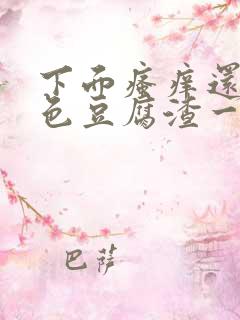 下面瘙痒還
色豆腐渣一
巴萨